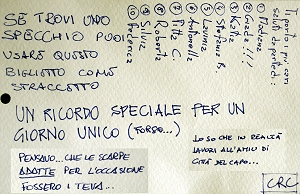 SE TROVI UNO
SPECCHIO PUOI
USARE QUESTO
BIGLIETTO COME
STRACCETTO
Ti porto i più cari
saluti da parte di:
①
② Giada!!!
③ Katia
④ Stefania B
⑤ Lavinia
⑥ Antonella
⑦ C.
⑧ Roberta
⑨ Silvia
⑩ Federica
UN RICORDO SPECIALE PER UN
GIORNO UNICO (FORSE...)
PENSAVO... CHE LE SCARPE
ADATTE PER L'OCCASIONE
FOSSERO I TEVA...
LO SO CHE IN REALTÀ
LAVORI ALL'AMIU DI
CITTÀ DEL CAPO...
CRC